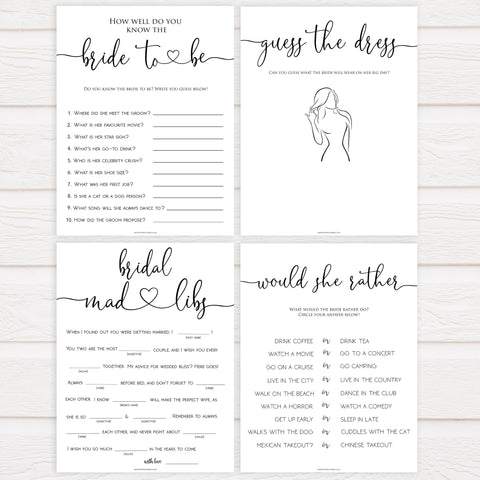 How well do you
know the
bride to be
Do you know the bride to be? Write you guess below!
1. Where did she meet the groom?
2. What is her favourite movie?
3. What is her star sign?
4. What's her go-to drink?
5. Who is her celebrity crush?
6. What is her shoe size?
7. What was her first job?
8. Is she a cat or a dog person?
9. What song will she always dance to?
10. How did the groom propose?
guess the dress
Can you guess what the bride will wear on her big day?
bridal
mad libs
When I found out you were getting married, I !
You two are the most couple, and I wish you every
together. My advice for wedded bliss? Here goes!
Always before bed, and don't forget to
each other. I know will make the perfect wife, as
she is so & . Remember to always
each other, and never fight about .
I wish you so much in the years to come
with love
would she rather
What would the bride rather do?
Circle your answer below!
Drink coffee or Drink tea
Watch a movie or Go to a concert
Go on a cruise or Go camping
Live in the city or Live in the country
Walk on the beach or Dance in the club
Watch a horror or Watch a comedy
Get up early or Sleep in late
Walks with the dog or Cuddles with the cat
Mexican takeout? or Chinese takeout